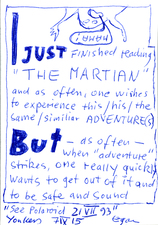 HURRAH!
I JUST Finished reading
"THE MARTIAN"
and as often, one wishes
to experience this/his/the
same/similiar ADVENTURE(S)
BUT — as often —
when "adventure"
strikes, one really quickly
wants to get out of it and
to be safe and sound
"See Polaroid 21 VII 93"
Yonkers 7 IX 15 Egon